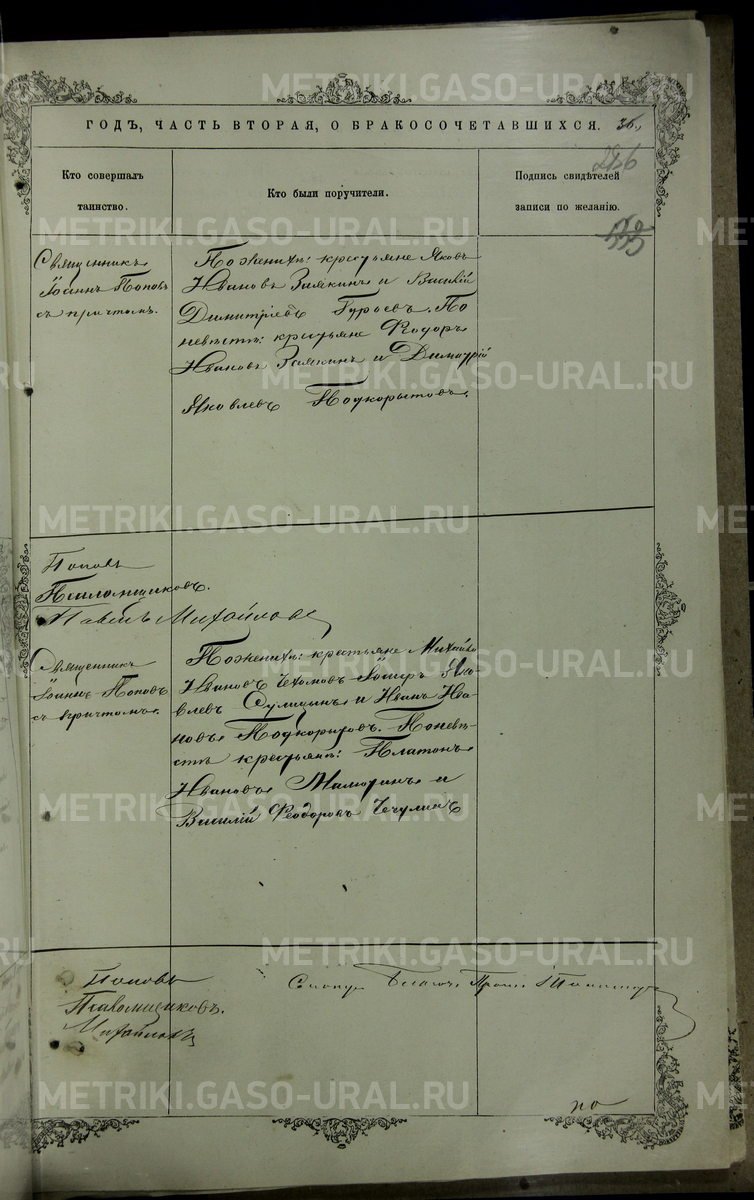 METRIKI.GASO-URAL.RU
ГОДЪ, ЧАСТЬ ВТОРАЯ, О БРАКОСОЧЕТАВШИХСЯ.
Кто совершалъ
таинство.
Кто были поручители.
Подпись свидѣтелей
записи по желанію.
Священникъ
Іоаннъ Поповъ
съ причтомъ.
По женихѣ: крестьяне Яковъ
Ивановъ Заякинъ и Василій
Димитріевъ Гурьевъ. По
невѣстѣ: крестьяне Ѳеодоръ
Ивановъ Заякинъ и Димитрій
Яковлевъ Подкорытовъ.
Поповъ
Павелъ Михайловъ
Священникъ
Іоаннъ Поповъ
съ причтомъ.
По женихѣ: крестьяне Михаилъ
Ивановъ Яко-
влевъ и Иванъ Ива-
новъ Подкорытовъ. По невѣ-
стѣ крестьяне: Платонъ
Ивановъ Мамотинъ и
Василій Ѳеодоровъ Чечулинъ
Поповъ
Михайловъ
по